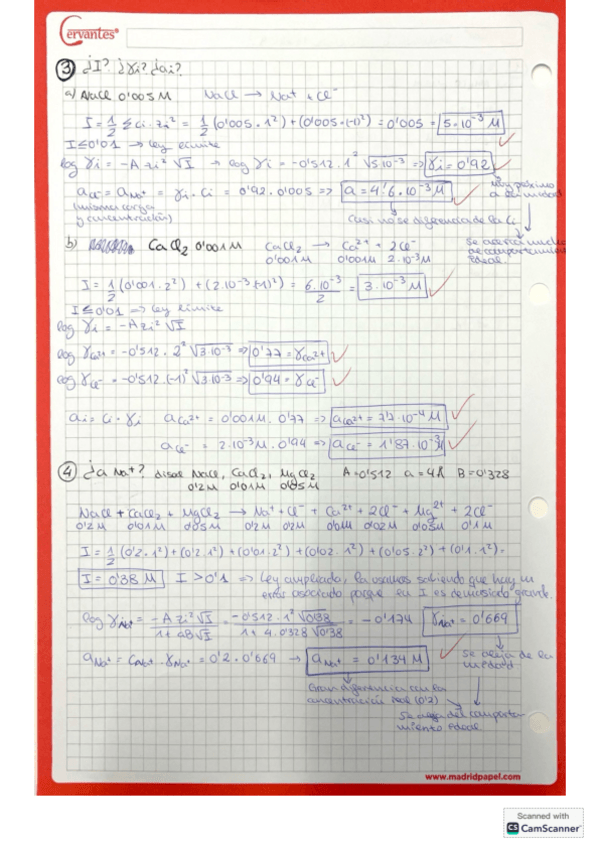 Cervantes®
③ ¿I? ¿γi? ¿ai?
a) NaCl 0'005M NaCl → Na⁺ + Cl⁻
I = 1/2 Σci·zi² = 1/2 (0'005·1²) + (0'005·(-1)²) = 0'005 = 5·10⁻³ M
I≤0'01 → ley límite
log γi = -A zi² √I → log γi = -0'512·1² √5·10⁻³ ⇒ γi = 0'92
aCl⁻ = aNa⁺ = γi·Ci = 0'92·0'005 ⇒ a = 4'6·10⁻³ M
(misma carga y concentración)
Casi no se diferencia de la Ci
Muy próximo a la unidad
Se acerca mucho de comportamiento ideal.
b) CaCl₂ 0'001M CaCl₂ → Ca²⁺ + 2Cl⁻
0'001M 0'001M 2·10⁻³M
I = 1/2 (0'001·2²) + (2·10⁻³·(-1)²) = 6·10⁻³/2 = 3·10⁻³ M
I≤0'01 ⇒ ley límite
log γi = -A zi² √I
log γCa²⁺ = -0'512·2² √3·10⁻³ ⇒ 0'77 = γCa²⁺
log γCl⁻ = -0'512·(-1)² √3·10⁻³ ⇒ 0'94 = γCl⁻
ai = ci·γi aCa²⁺ = 0'001M·0'77 ⇒ aCa²⁺ = 7'7·10⁻⁴ M
aCl⁻ = 2·10⁻³M·0'94 ⇒ aCl⁻ = 1'87·10⁻³M
④ ¿a Na⁺? disol NaCl, CaCl₂, MgCl₂ A=0'512 a=4Å B=0'328
0'2M 0'01M 0'05M
NaCl + CaCl₂ + MgCl₂ → Na⁺ + Cl⁻ + Ca²⁺ + 2Cl⁻ + Mg²⁺ + 2Cl⁻
0'2M 0'01M 0'05M 0'2M 0'2M 0'01M 0'02M 0'05M 0'1M
I = 1/2 (0'2·1²) + (0'2·1²) + (0'01·2²) + (0'02·1²) + (0'05·2²) + (0'1·1²) =
I = 0'38 M I > 0'1 ⇒ ley ampliada, la usamos sabiendo que hay un
error asociado porque la I es demasiado grande.
log γNa⁺ = -A zi² √I / 1 + aB√I = -0'512·1² √0'38 / 1 + 4·0'328 √0'38 = -0'174 γNa⁺ = 0'669
aNa⁺ = CNa⁺·γNa⁺ = 0'2·0'669 → aNa⁺ = 0'134 M
Se aleja de la unidad
Gran diferencia con la concentración real (0'2)
Se aleja del comportamiento ideal
www.madridpapel.com
Scanned with
CS CamScanner